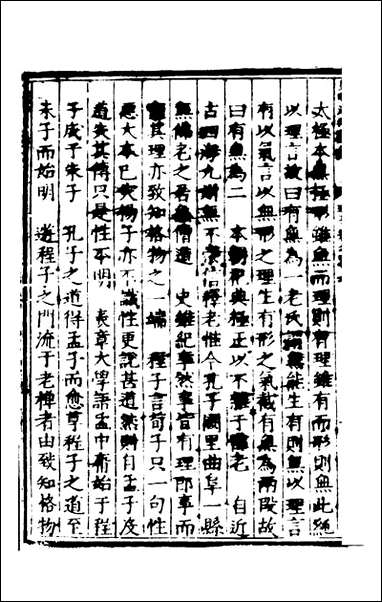 太極本無極形雖無而理則有理雖有而形則無此純
以理言故曰有無為一老氏謂無能生有則無以理言
有以氣言以無形之理生有形之氣截有無為兩段故
曰有無為二 本 正以不 老 自近
古四海九州無不 釋老惟今孔子闕里曲阜一縣
無佛老之居僧道 史雖紀事然事皆有理即事而
窮其理亦致知格物之一端 程子言荀子只一句性
惡大本已失揚子亦不識性更說甚道然則自孟子及
道失其傳只是性不明 表章大學語孟中庸始于程
子成于朱子 孔子之道得孟子而愈尊程子之道至
朱子而始明 遊程子之門流于老禪者由致知格物